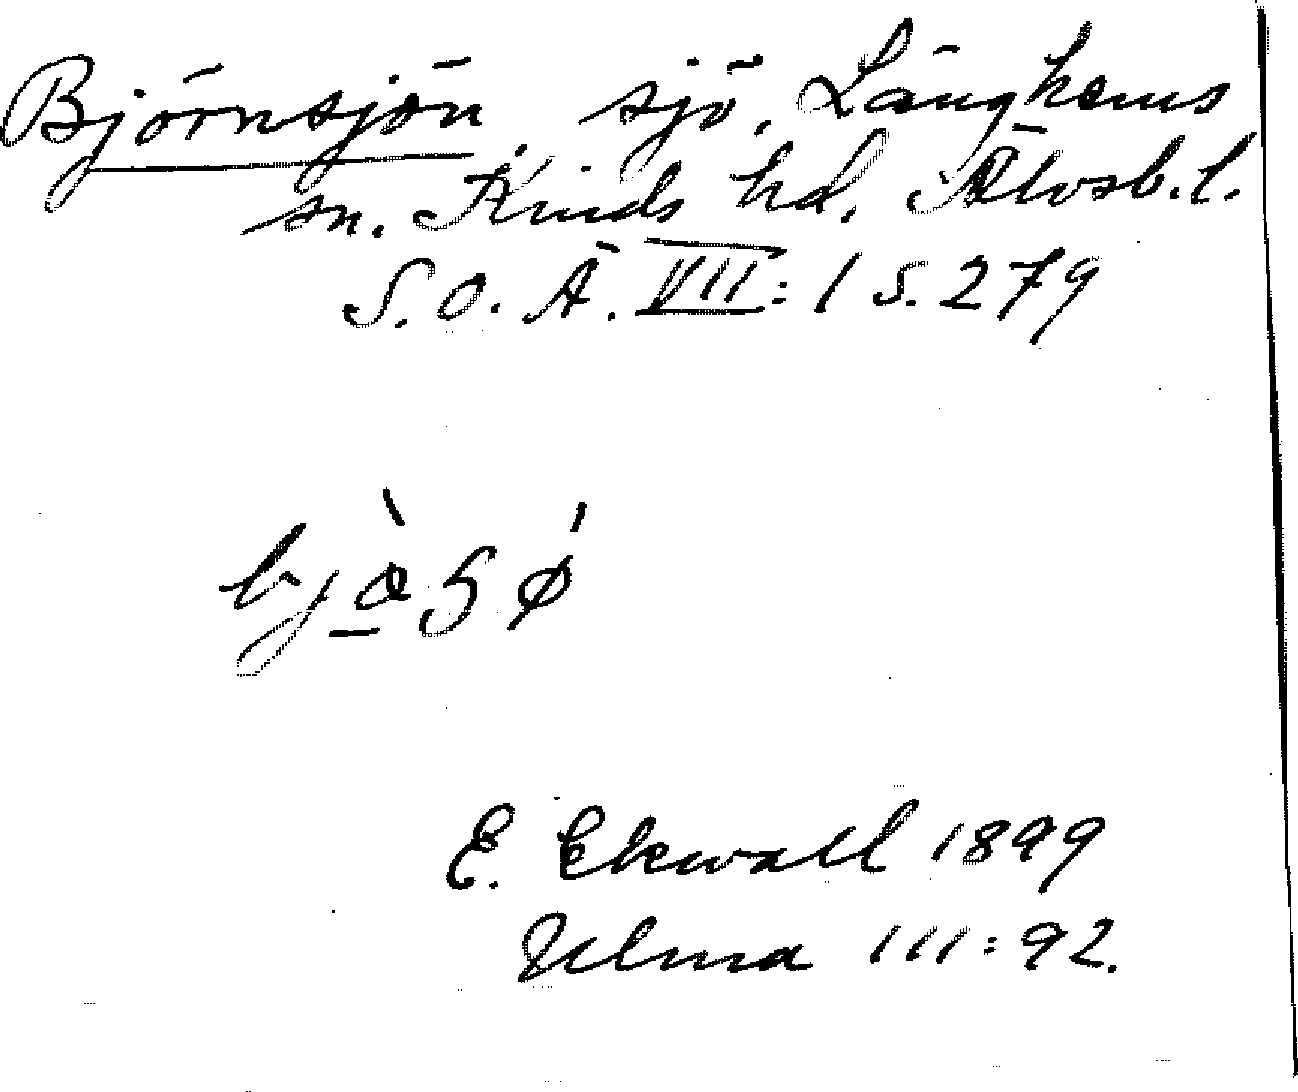 Björnsjön sjö, Länghems
sn. Kinds hd. Älvsb. l.
S. O. Ä. VII: 1 s. 279
E. Ekwall 1899
Ulma 111:92.